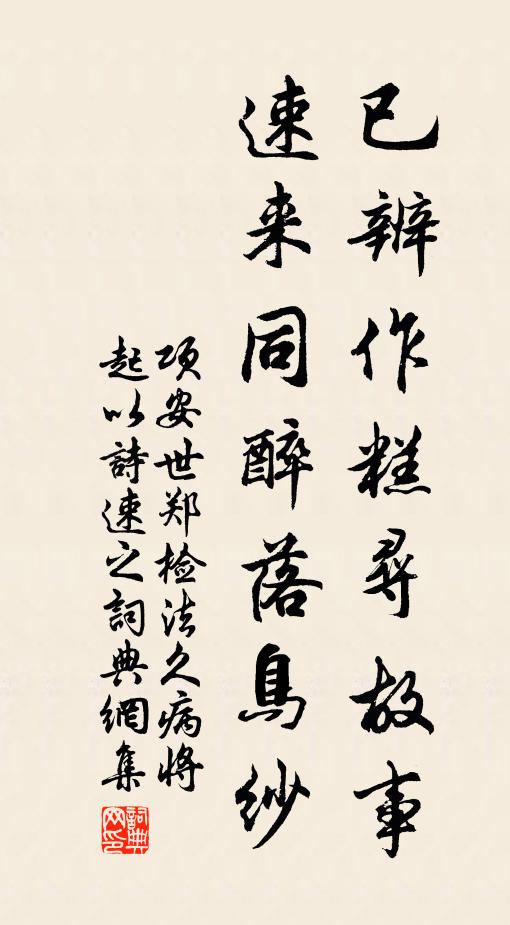 已辦作糕尋故事
速来同醉落烏紗
项安世郑检法久病将
起以詩速之詞典網集
詞典
网印